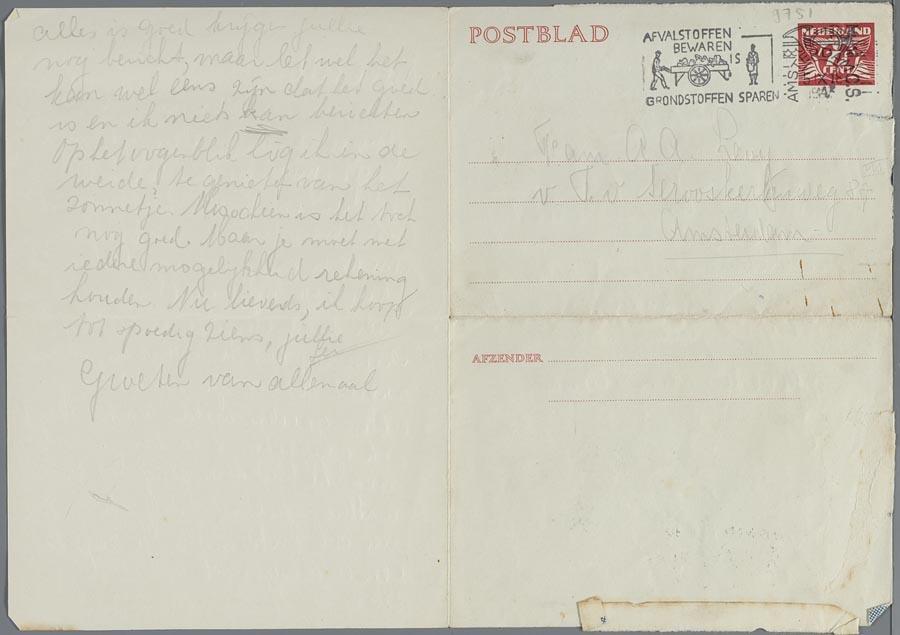 alles is goed krijgen jullie
nog bericht, maar let wel het
kan wel eens zijn dat het goed
is en ik niets kan berichten
Op het oogenblik lig ik in de
weide, te genieten van het
zonnetje. Misschien is het toch
nog goed. Maar je moet met
iedere mogelijkheid rekening
houden. Nu lieverds, ik hoop
tot spoedig ziens, jullie
Groeten van allemaal
9751
POSTBLAD
AFVALSTOFFEN
BEWAREN
IS
GRONDSTOFFEN SPAREN
NEDERLAND
CENT
Fam A A. Levy
v T. v Serooskerkenweg 87
Amsterdam
AFZENDER